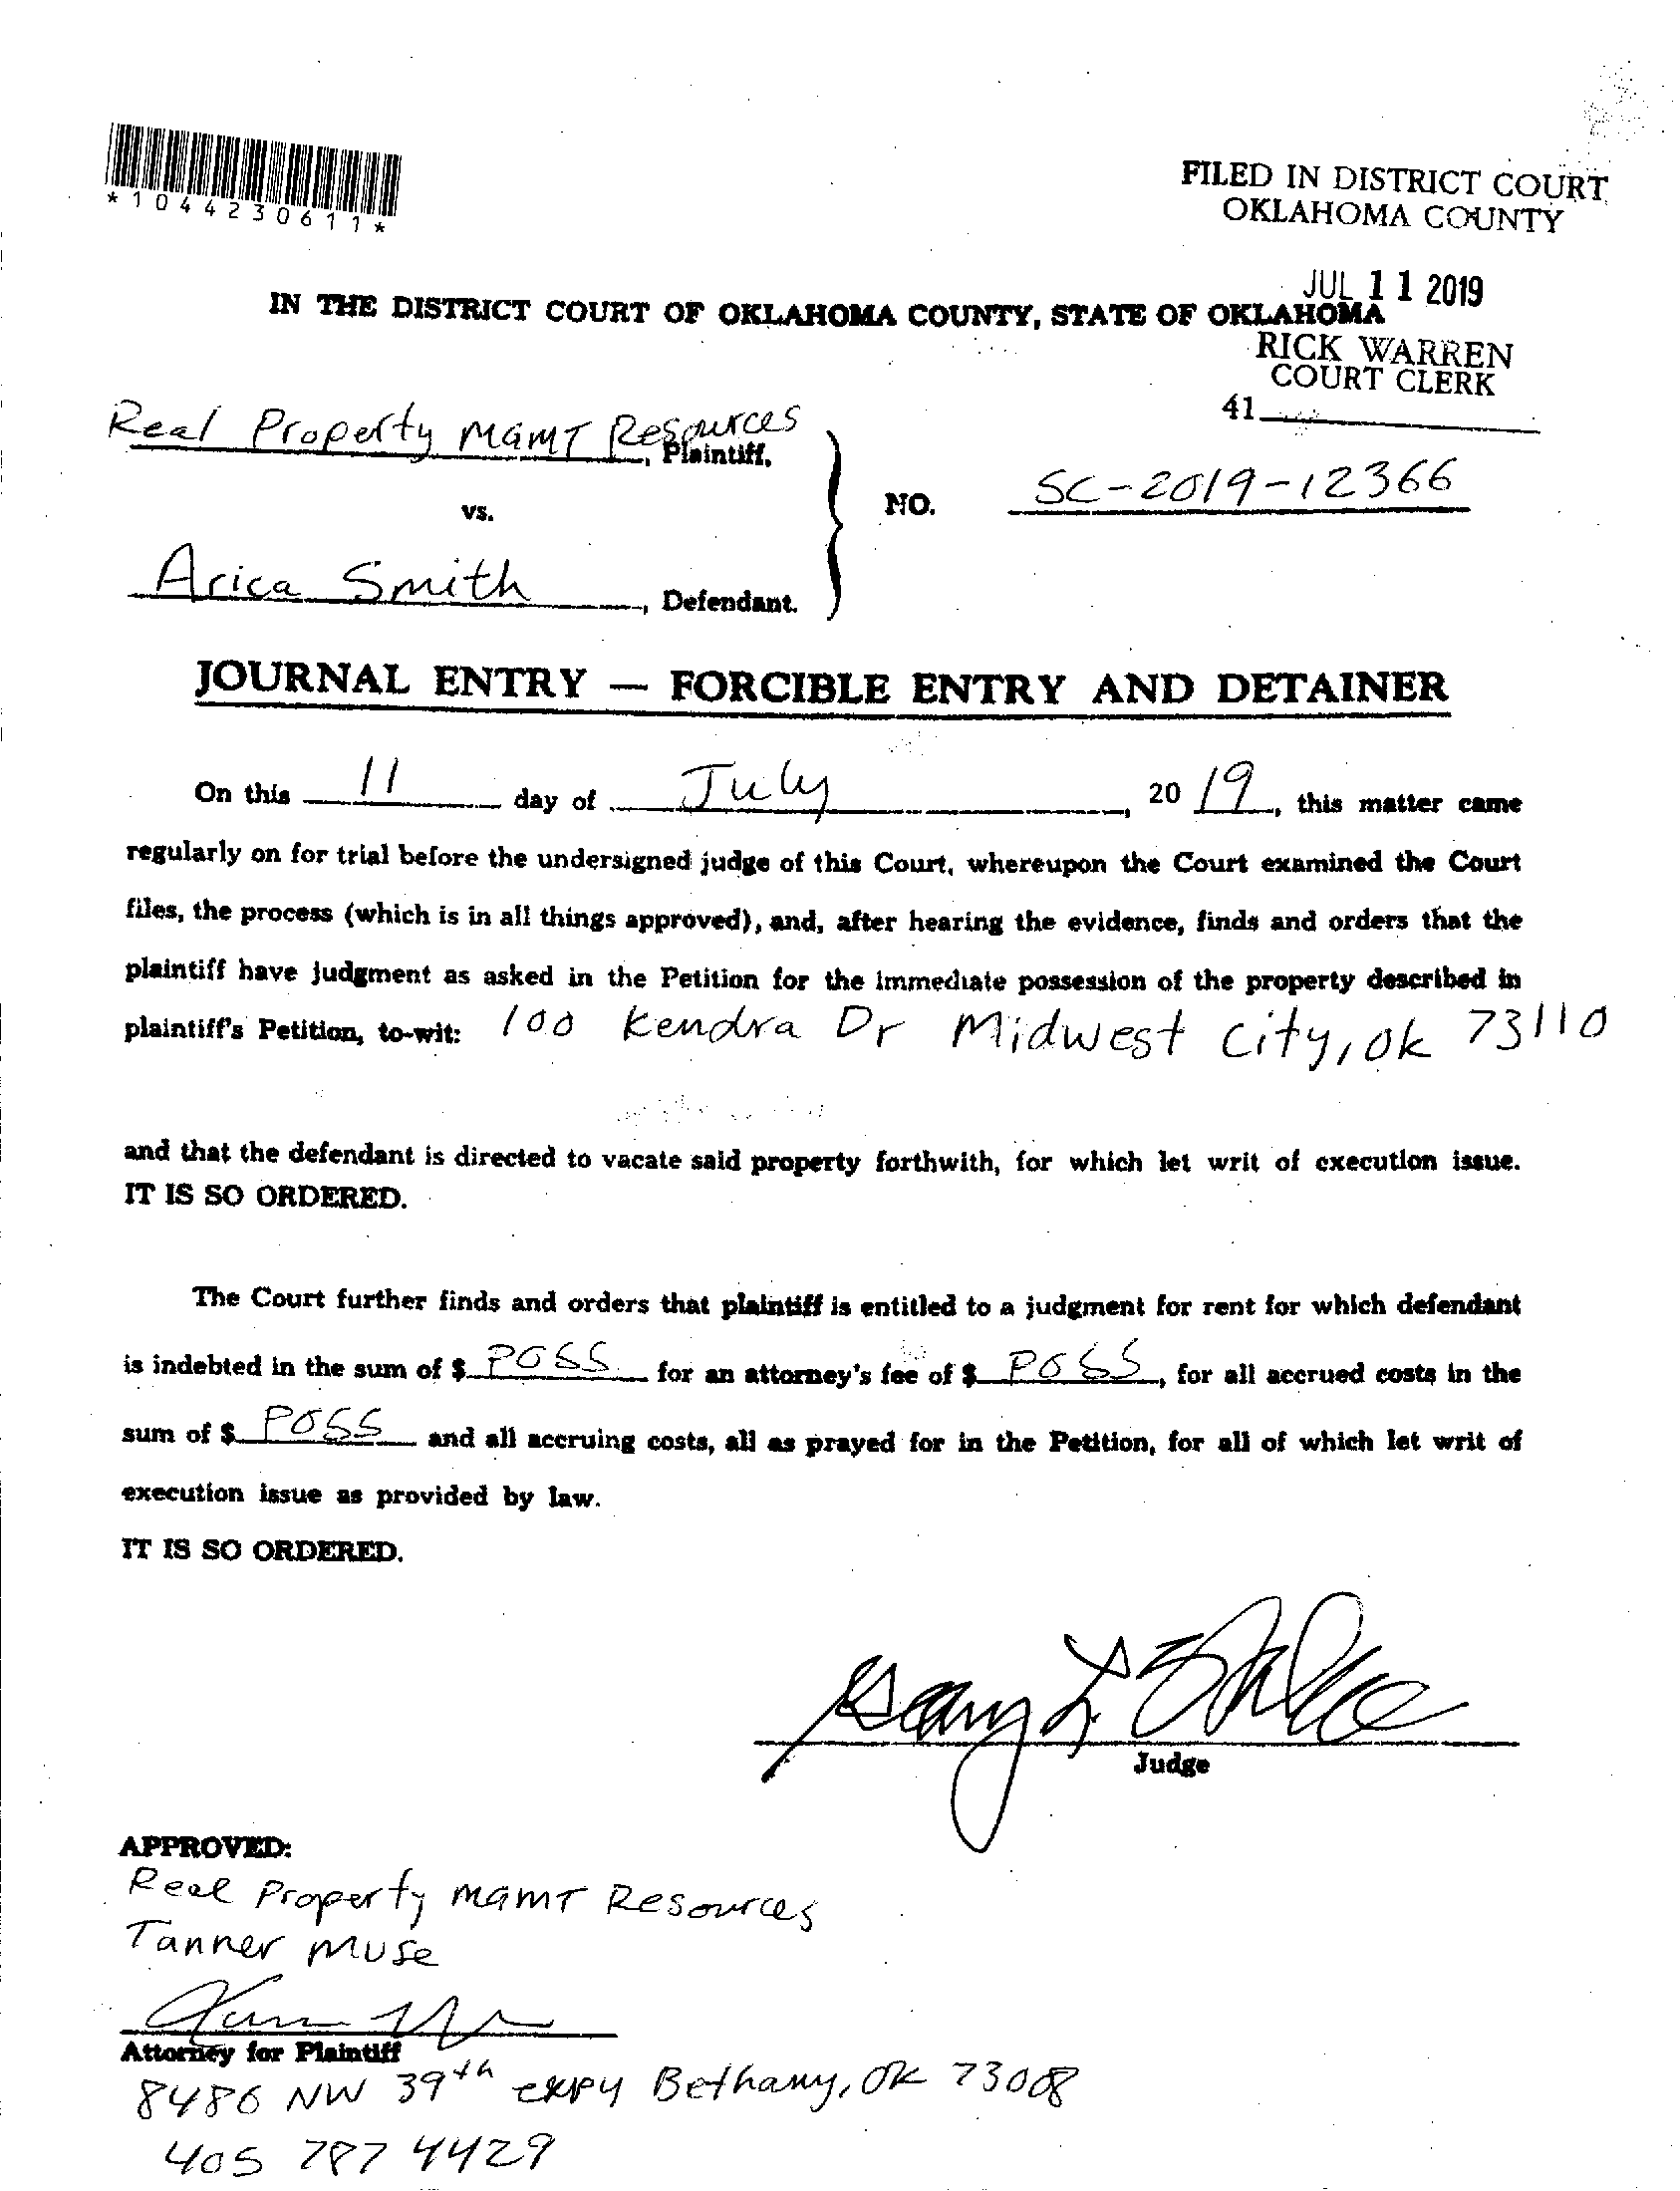 *1044230611*
FILED IN DISTRICT COURT
OKLAHOMA COUNTY
JUL 11 2019
IN THE DISTRICT COURT OF OKLAHOMA COUNTY, STATE OF OKLAHOMA
RICK WARREN
COURT CLERK
41
Real Property MGMT Resources
, Plaintiff,
vs.
NO. SC-2019-12366
Arica Smith, Defendant.
JOURNAL ENTRY — FORCIBLE ENTRY AND DETAINER
On this 11 day of July, 20 19, this matter came
regularly on for trial before the undersigned judge of this Court, whereupon the Court examined the Court
files, the process (which is in all things approved), and, after hearing the evidence, finds and orders that the
plaintiff have judgment as asked in the Petition for the immediate possession of the property described in
plaintiff's Petition, to-wit: 100 Kendra Dr Midwest City, OK 73110
and that the defendant is directed to vacate said property forthwith, for which let writ of execution issue.
IT IS SO ORDERED.
The Court further finds and orders that plaintiff is entitled to a judgment for rent for which defendant
is indebted in the sum of $ POSS for an attorney's fee of $ POSS, for all accrued costs in the
sum of $ POSS and all accruing costs, all as prayed for in the Petition, for all of which let writ of
execution issue as provided by law.
IT IS SO ORDERED.
Judge
APPROVED:
Real Property MGMT Resources
Tanner Muse
Attorney for Plaintiff
8486 NW 39th expy Bethany, OK 73008
405 787 4429